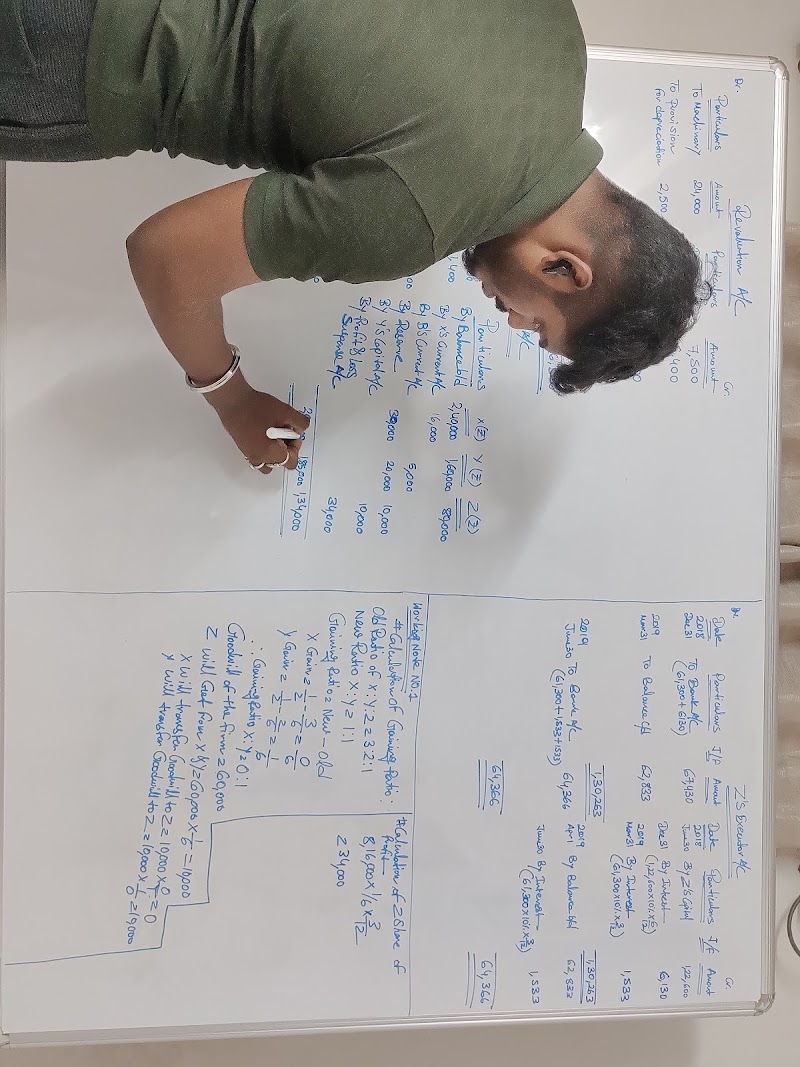 Revaluation A/C
Dr. Cr.
Particulars Amount Particulars Amount
To Machinary 24,000 7,500
To Provision 2,500 ,400
for depreciation
A/C
Particulars X(Z) Y(Z) Z(Z)
By Balance b/d 2,40,000 1,60,000 80,000
By X's Current A/C 16,000
By B's Current A/C 5,000
By Reserve 30,000 20,000 10,000
By Y's Capital A/C 10,000
By Profit & Loss 34,000
Suspense A/C
185,000 1,34,000
Z's Executor A/C
Dr. Cr.
Date Particulars J/F Amount Date Particulars J/F Amount
2018 2018
Dec31 To Bank A/C 67,430 June30 By Z's Capital 1,22,600
(61,300+6130) Dec31 By Interest 6,130
(1,22,600×10%×6/12)
2019 2019
Mar31 To Balance c/d 62,833 Mar31 By Interest 1,533
(61,300×10%×3/12)
1,30,263 1,30,263
2019 2019
June30 To Bank A/C 64,366 Apr1 By Balance b/d 62,833
(61,300+1,533+1533) June30 By Interest 1,533
(61,300×10%×3/12)
64,366 64,366
Working Note No.1
#Calculation of Gaining Ratio:
Old Ratio of X:Y:Z = 3:2:1
New Ratio X:Y = 1:1
Gaining Ratio = New - Old
X Gain = 1/2 - 3/6 = 0/6
Y Gain = 1/2 - 2/6 = 1/6
∴ Gaining Ratio X:Y = 0:1
Goodwill of the firm = 60,000
Z will Get from X & Y = 60,000 × 1/6 = 10,000
X will transfer Goodwill to Z = 10,000 × 0/1 = 0
Y will transfer Goodwill to Z = 10,000 × 1/0 = 10,000
#Calculation of Z Share of
Profit
8,16,000 × 1/6 × 3/12
= 34,000